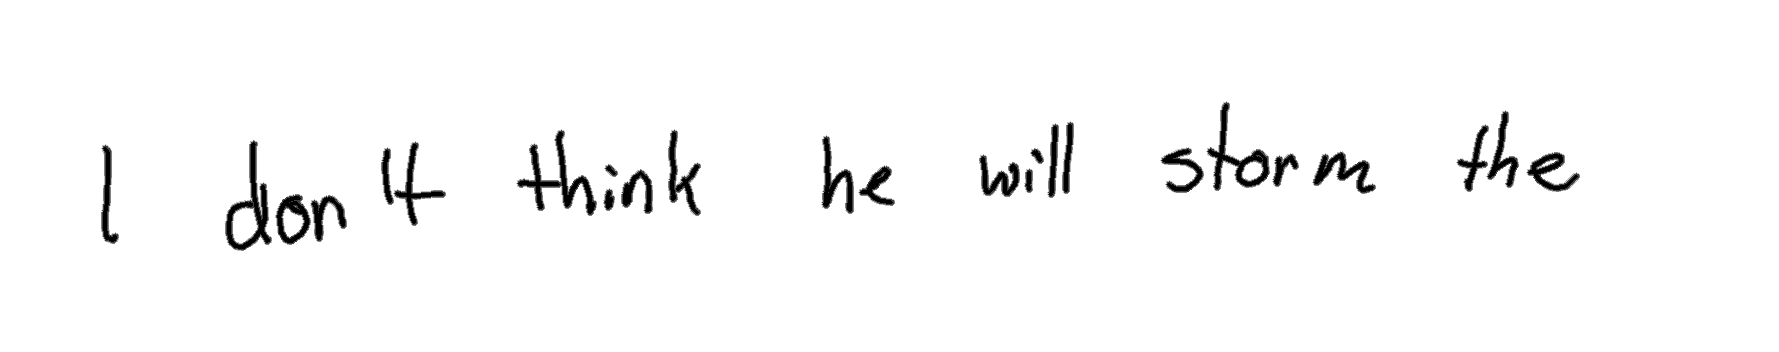 I don't think he will storm the